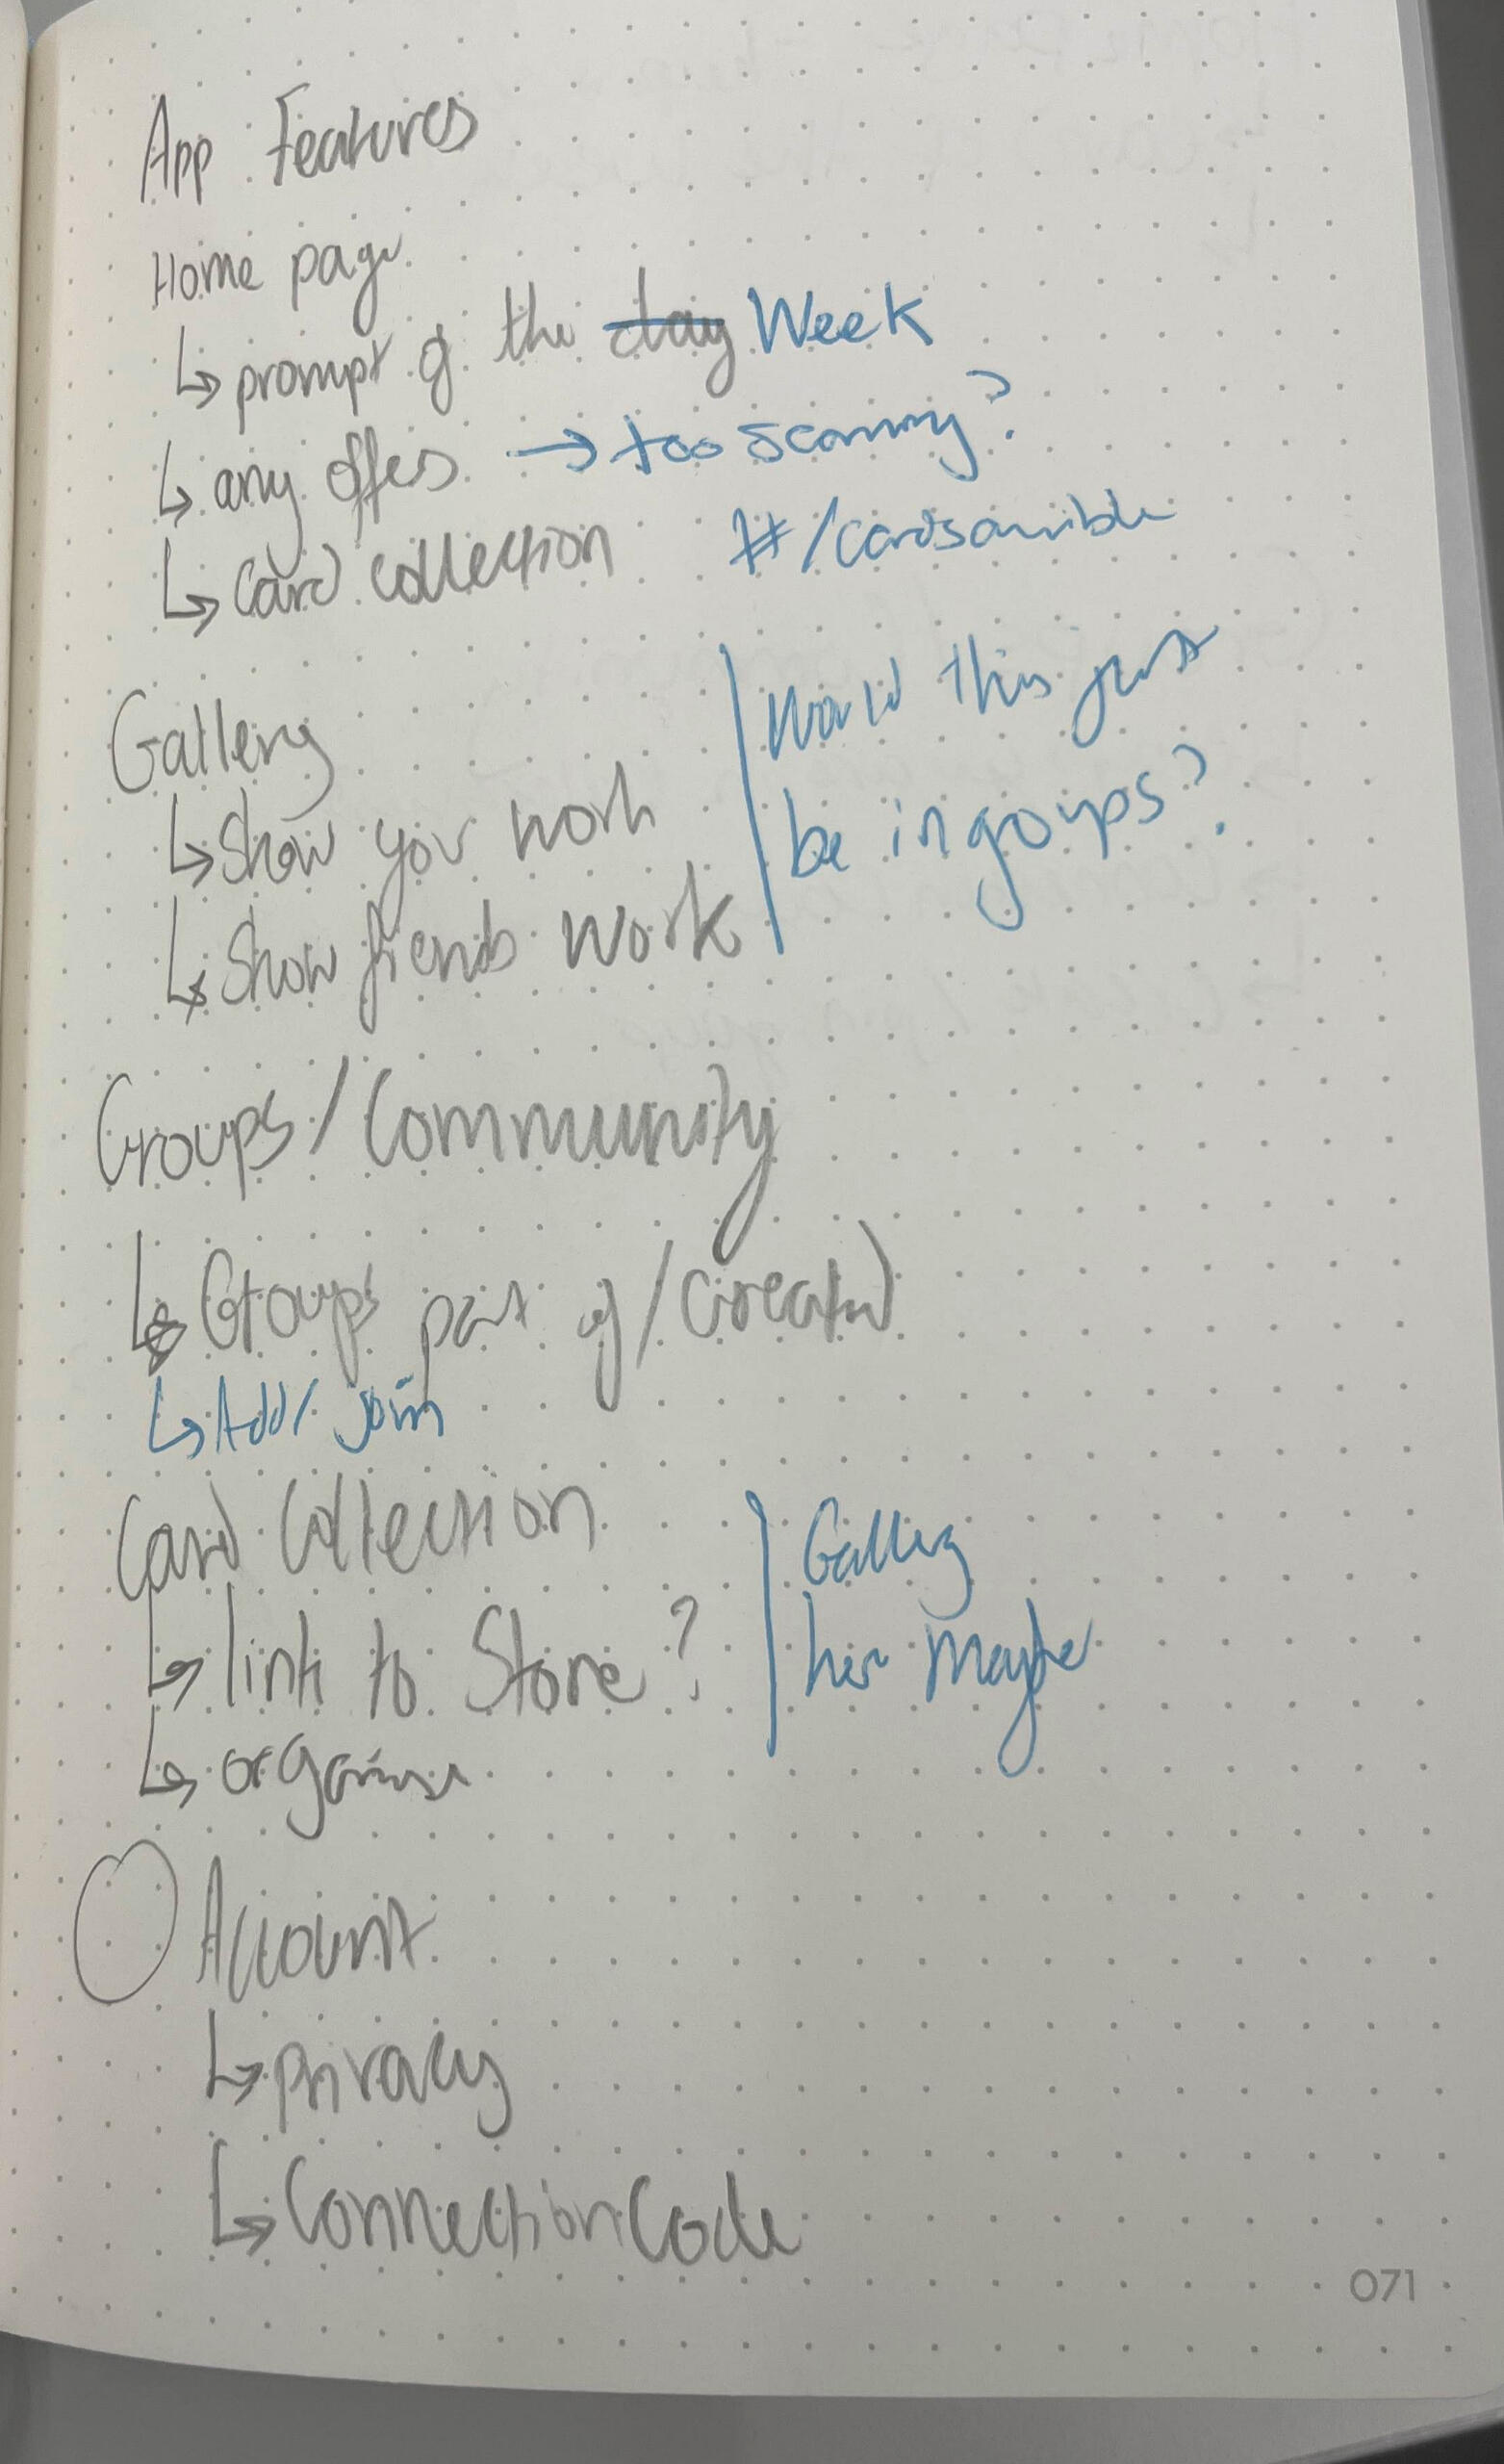 App Features
Home page
↳ prompt of the ~~day~~ Week
↳ any offes → too scammy?
↳ Card collection #/cards
Gallery
↳ Show your work | Would this just
↳ Show friends work | be in groups?
Groups/Community
↳ Groups part of/Created
↳ Add/join
Card Collection | Gallery
↳ link to Store? | her maybe
↳ organise
Account
↳ privacy
↳ Connection Code
071